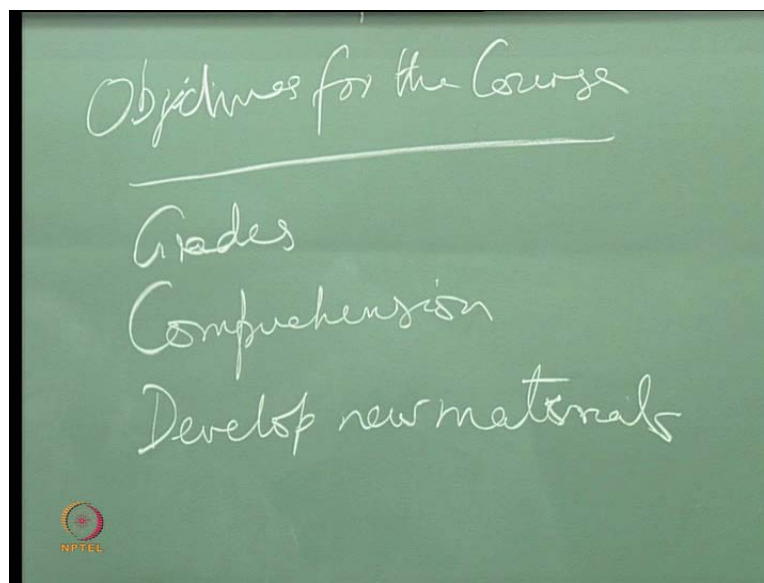 Objectives for the Course
Grades
Comprehension
Develop new materials
NPTEL